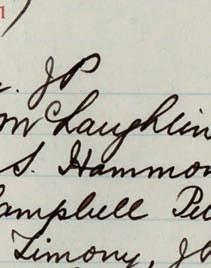 JP
McLaughlin
S. Hammon
Campbell
Timony, JP